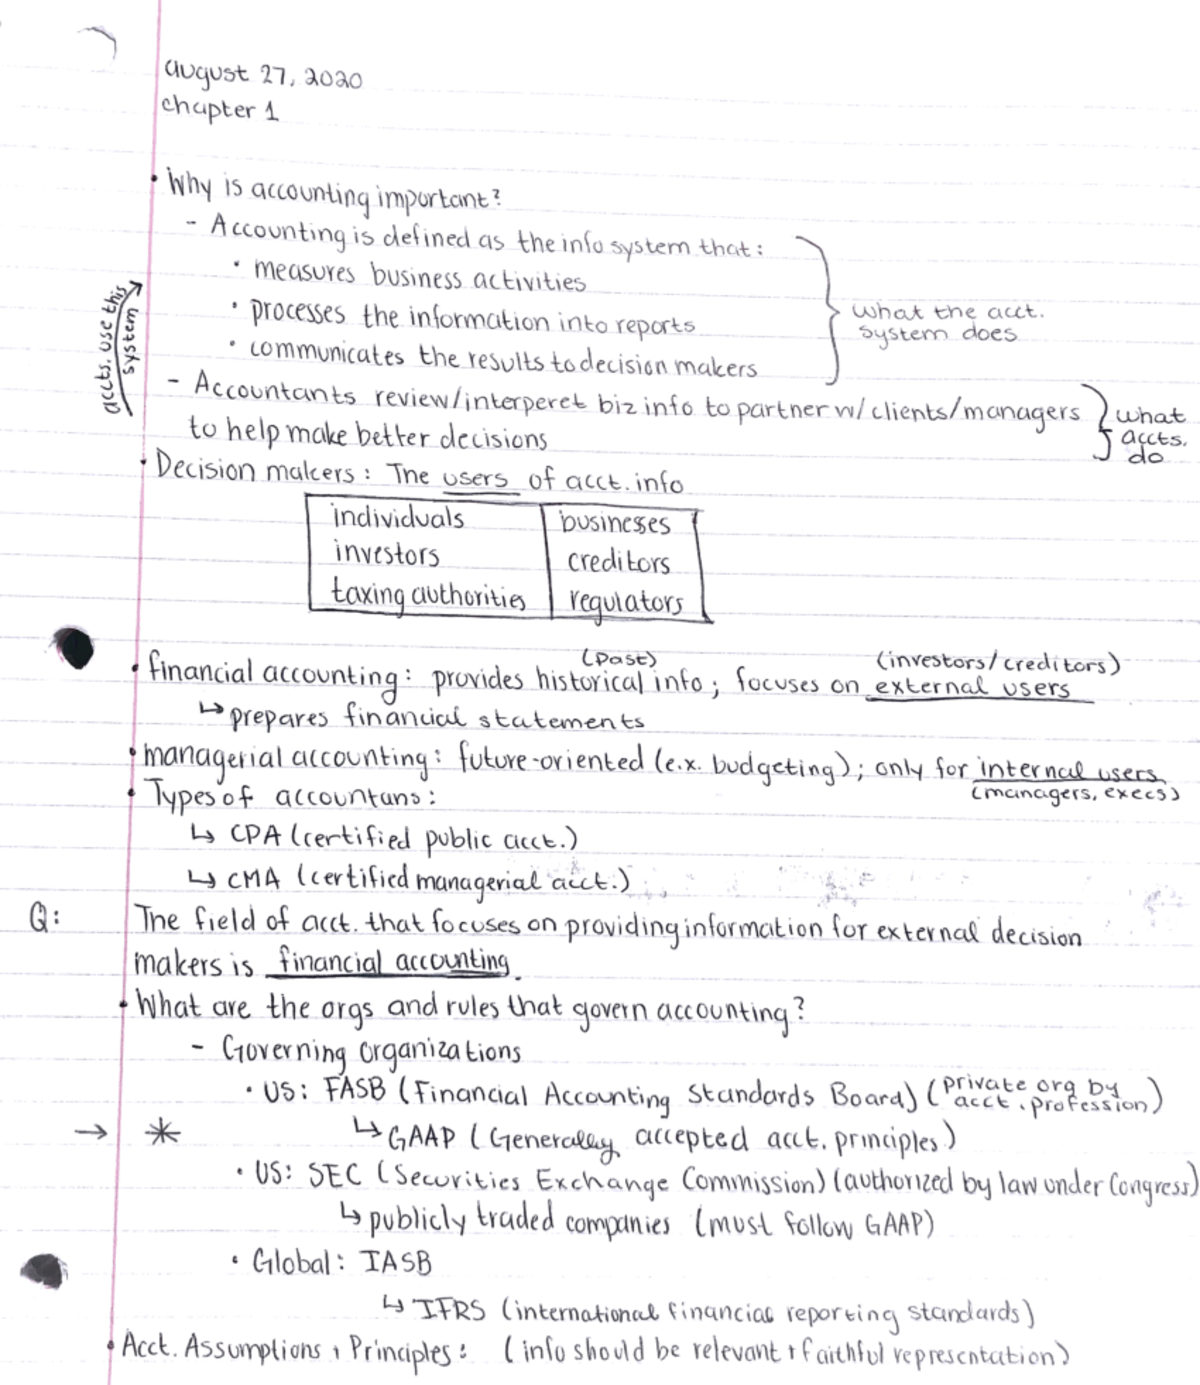 august 27, 2020
chapter 1
• Why is accounting important?
- Accounting is defined as the info system that:
• measures business activities
• processes the information into reports
• communicates the results to decision makers
what the acct.
system does
accts. use this
system
- Accountants review/interperet biz info to partner w/ clients/managers
to help make better decisions
what
accts.
do
• Decision makers: The users of acct. info
individuals businesses
investors creditors
taxing authorities regulators
(past) (investors/creditors)
• financial accounting: provides historical info; focuses on external users
↳ prepares financial statements
• managerial accounting: future-oriented (e.x. budgeting); only for internal users
(managers, execs)
• Types of accountans:
↳ CPA (certified public acct.)
↳ CMA (certified managerial acct.)
Q: The field of acct. that focuses on providing information for external decision
makers is financial accounting.
• What are the orgs and rules that govern accounting?
- Governing organizations
• US: FASB (Financial Accounting Standards Board) (private org by
acct. profession)
→ * ↳ GAAP (Generally accepted acct. principles)
• US: SEC (Securities Exchange Commission) (authorized by law under Congress)
↳ publicly traded companies (must follow GAAP)
• Global: IASB
↳ IFRS (international financial reporting standards)
• Acct. Assumptions + Principles: (info should be relevant + faithful representation)